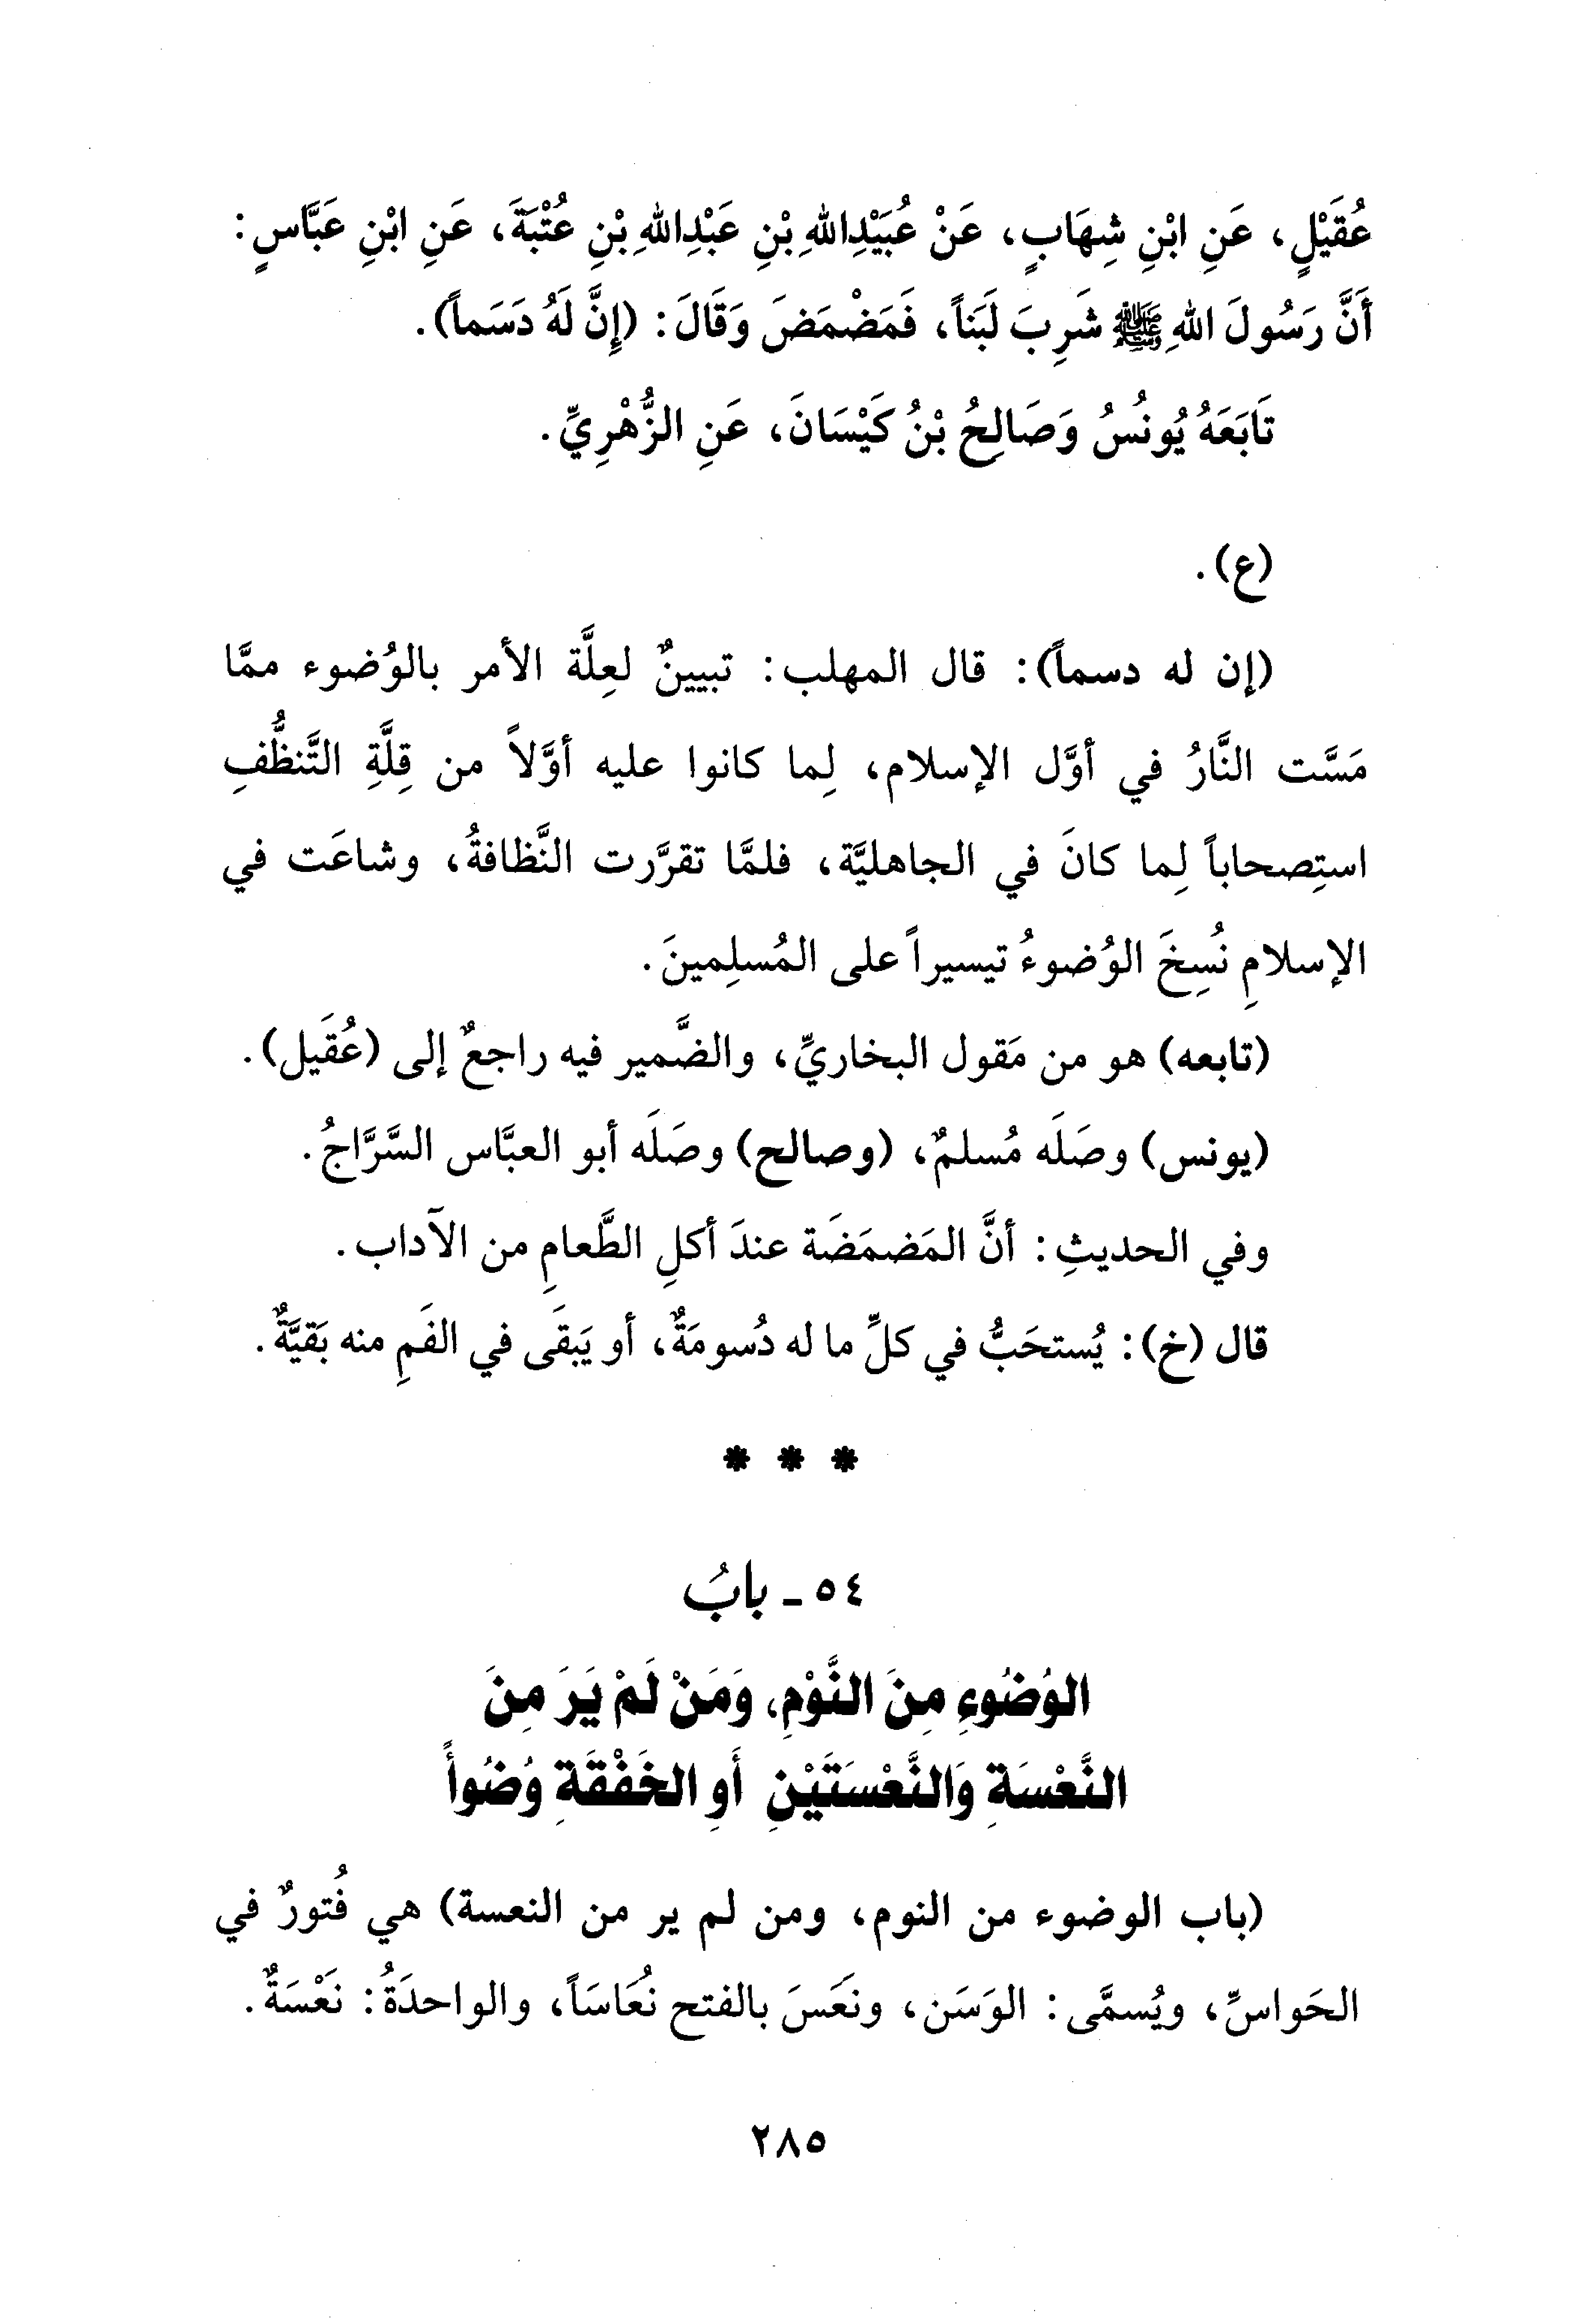 عُقَيْلٍ، عَنِ ابْنِ شِهَابٍ، عَنْ عُبَيْدِاللهِ بْنِ عَبْدِاللهِ بْنِ عُتْبَةَ، عَنِ ابْنِ عَبَّاسٍ:
أَنَّ رَسُولَ اللهِ ﷺ شَرِبَ لَبَناً، فَمَضْمَضَ وَقَالَ: (إِنَّ لَهُ دَسَماً).
تَابَعَهُ يُونُسُ وَصَالِحُ بْنُ كَيْسَانَ، عَنِ الزُّهْرِيِّ.
(ع).
(إن له دسماً): قال المهلب: تبيينٌ لعِلَّة الأمر بالوُضوء ممَّا
مَسَّت النَّارُ في أوَّل الإسلام، لِما كانوا عليه أوَّلاً من قِلَّةِ التَّنظُّفِ
استِصحاباً لِما كانَ في الجاهليَّة، فلمَّا تقرَّرت النَّظافةُ، وشاعَت في
الإسلامِ نُسِخَ الوُضوءُ تيسيراً على المُسلِمينَ.
(تابعه) هو من مَقول البخاريِّ، والضَّمير فيه راجعٌ إلى (عُقَيل).
(يونس) وصَلَه مُسلمٌ، (وصالح) وصَلَه أبو العبَّاس السَّرَّاجُ.
وفي الحديثِ: أنَّ المَضمَضَة عندَ أكلِ الطَّعامِ من الآداب.
قال (خ): يُستحَبُّ في كلِّ ما له دُسومَةٌ، أو يَبقَى في الفَمِ منه بَقيَّةٌ.
* * *
٥٤ - بابُ
الوُضُوءِ مِنَ النَّوْمِ، وَمَنْ لَمْ يَرَ مِنَ
النَّعْسَةِ وَالنَّعْسَتَيْنِ أَوِ الخَفْقَةِ وُضُوأً
(باب الوضوء من النوم، ومن لم ير من النعسة) هي فُتورٌ في
الحَواسِّ، ويُسمَّى: الوَسَن، ونَعَسَ بالفتح نُعَاسَاً، والواحدَةُ: نَعْسَةٌ.
٢٨٥